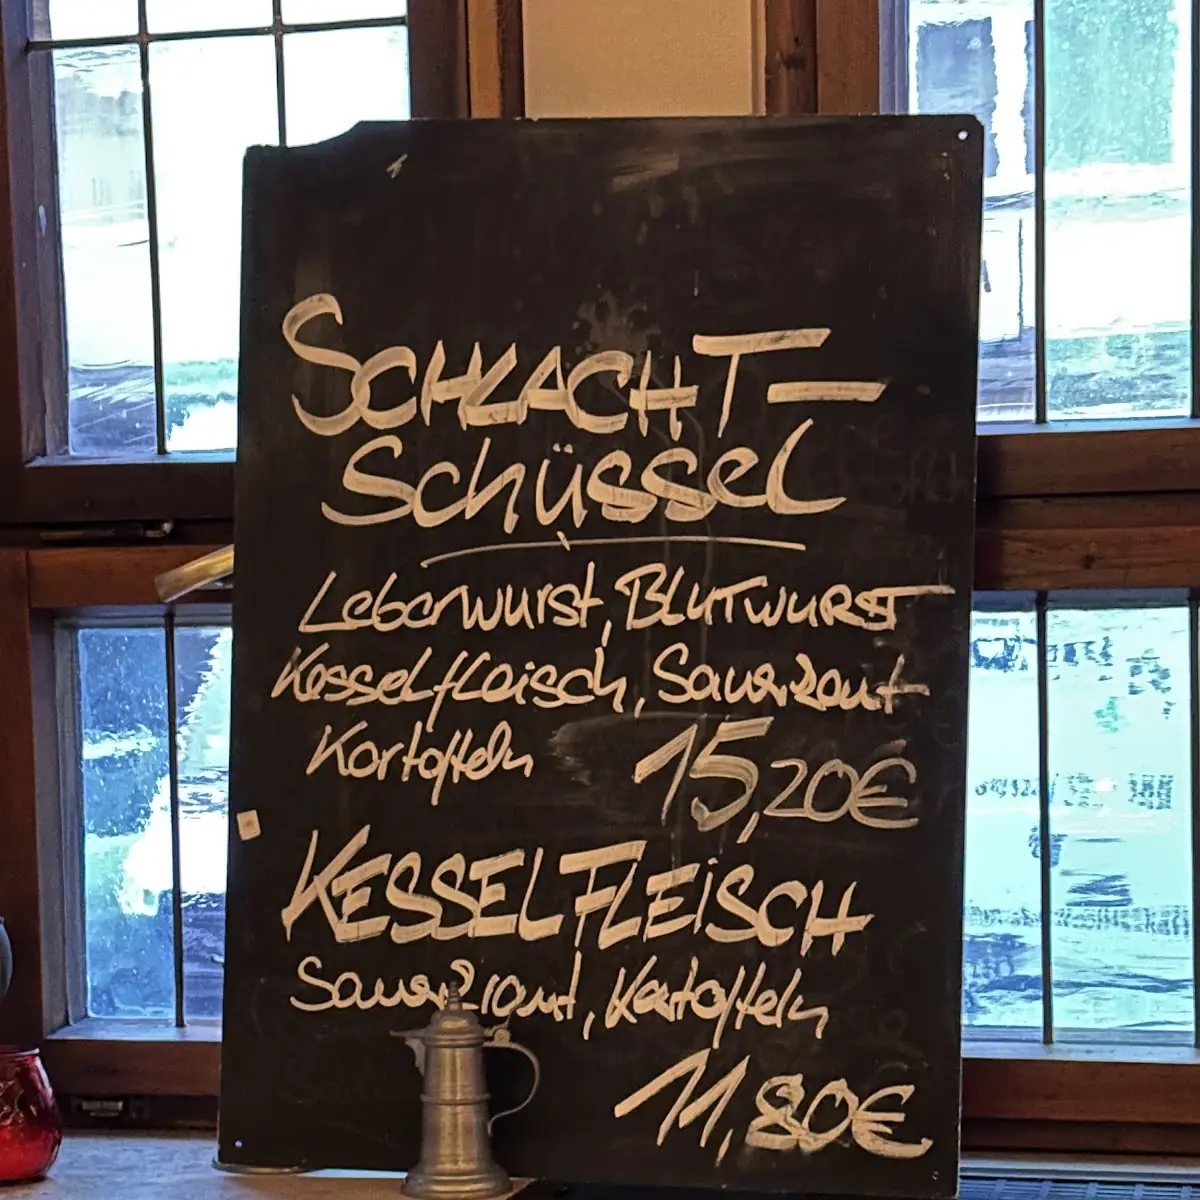 SCHLACHT-
SCHÜSSEL
Leberwurst, BLUTWURST
Kesselfleisch, Sauerkraut
Kartoffeln 15,20€
KESSELFLEISCH
Sauerkraut, Kartoffeln
11,80€